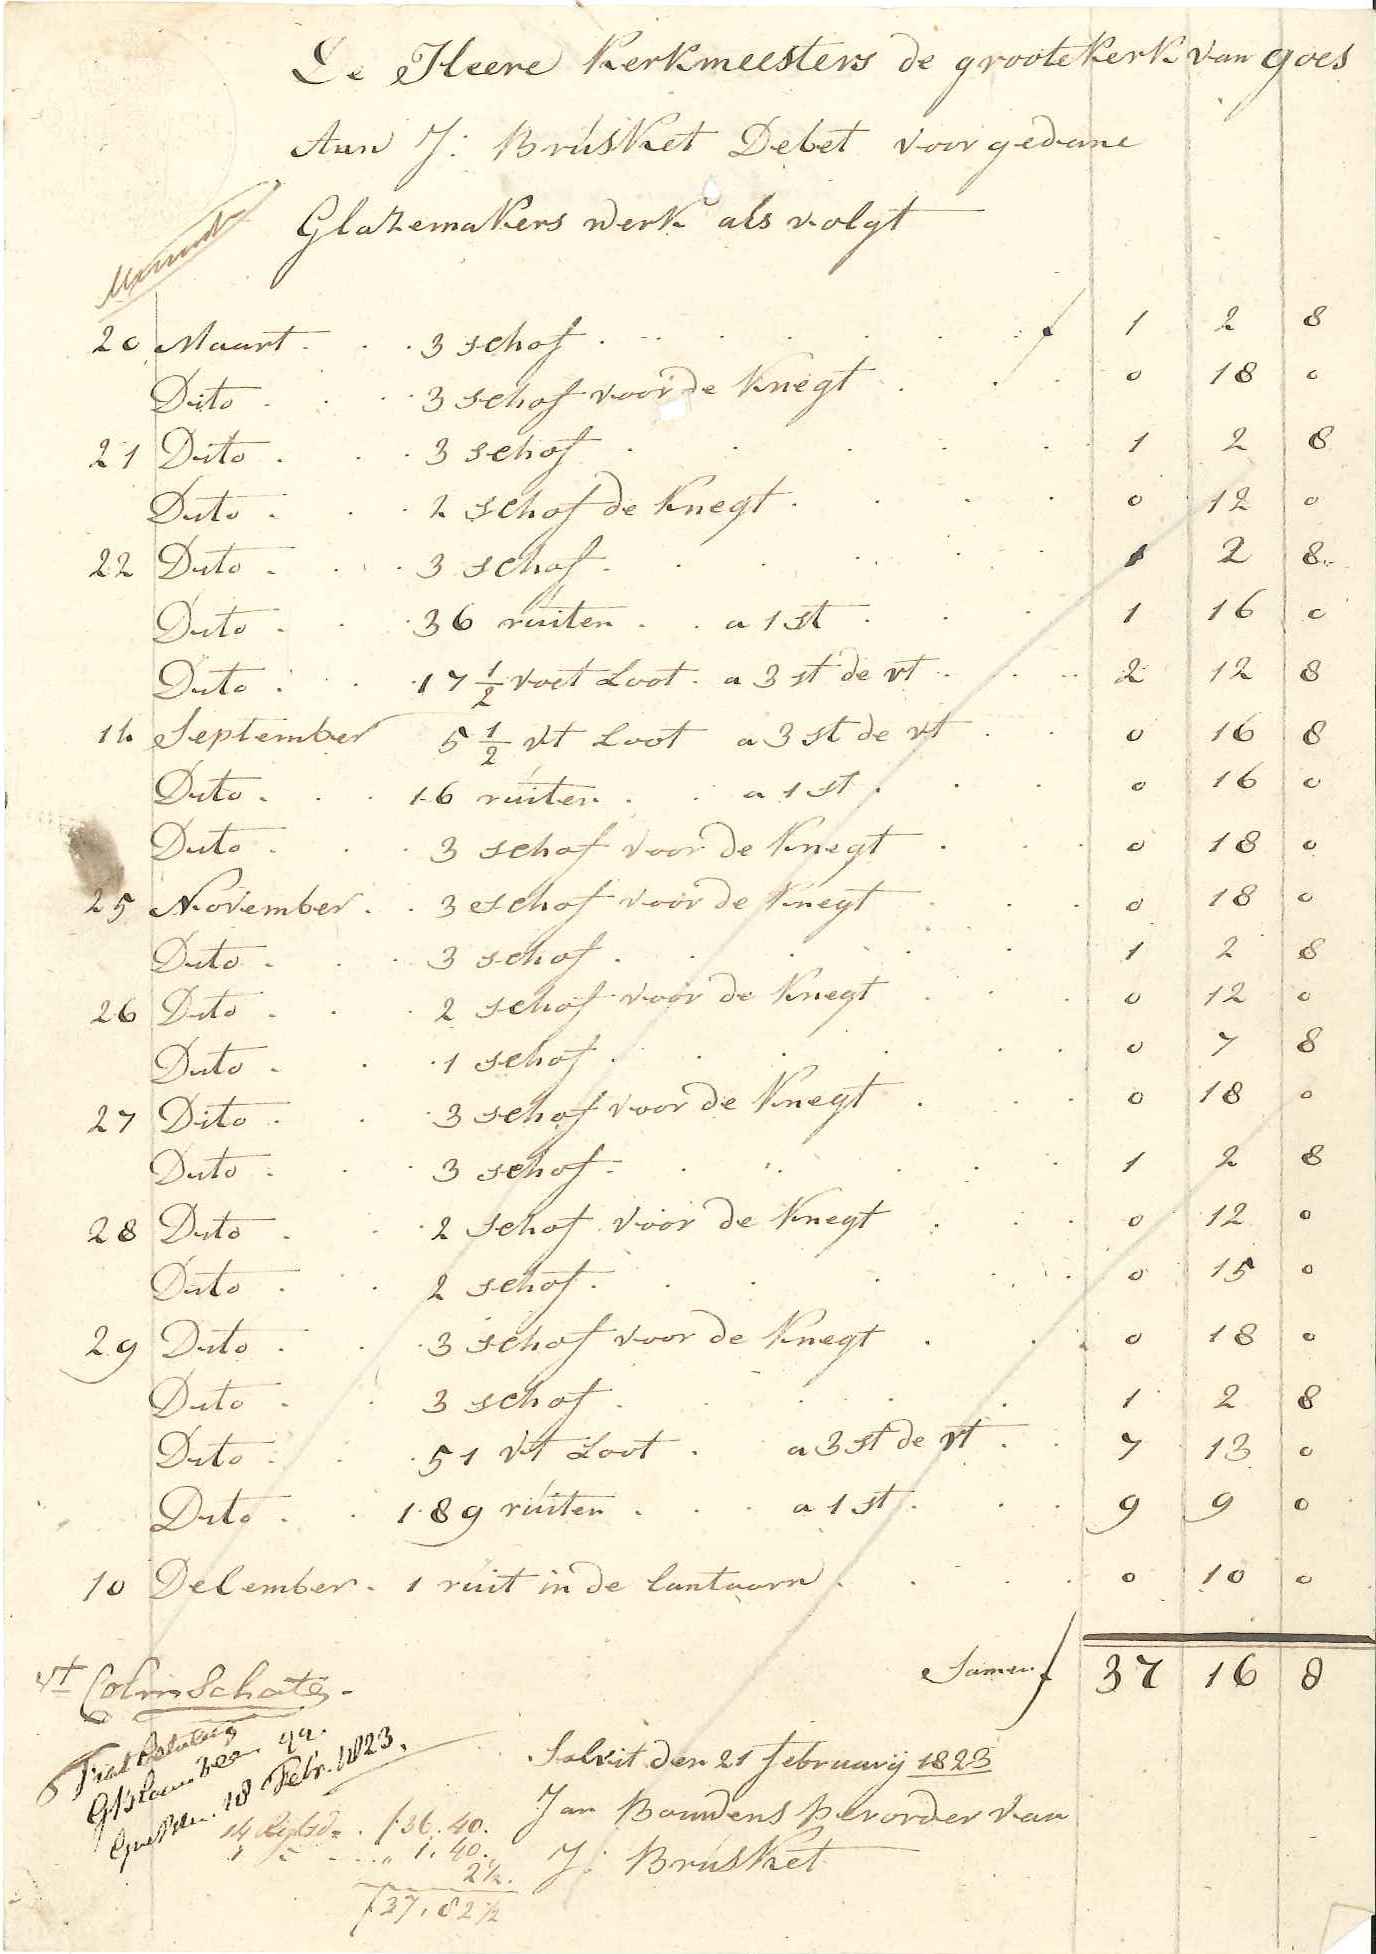 De Heere Kerkmeesters de groote Kerk van goes
Aan J: Brusket Debet voor gedane
Glazemakers werk als volgt
20 Maart . . . 3 schof . . . . f 1 2 8
Dito . . . 3 schof voor de Knegt . . . 0 18 0
21 Dito . . . 3 schof . . . . 1 2 8
Dito . . . 2 schof de Knegt . . . 0 12 0
22 Dito . . . 3 schof . . . . 1 2 8
Dito . . . 36 ruiten . . a 1 st . . . 1 16 0
Dito . . . 17 1/2 voet Loot . a 3 st de vt . . . 2 12 8
September 5 1/2 vt Loot a 3 st de vt . . 0 16 8
Dito . . . 16 ruiten . . a 1 st . . . 0 16 0
Dito . . . 3 schof voor de Knegt . . . 0 18 0
25 November . . 3 schof voor de Knegt . . . 0 18 0
Dito . . . 3 schof . . . . 1 2 8
26 Dito . . . 2 schof voor de Knegt . . . 0 12 0
Dito . . . 1 schof . . . . 0 7 8
27 Dito . . . 3 schof voor de Knegt . . . 0 18 0
Dito . . . 3 schof . . . . 1 2 8
28 Dito . . . 2 schof voor de Knegt . . . 0 12 0
Dito . . . 2 schof . . . . 0 15 0
29 Dito . . . 3 schof voor de Knegt . . . 0 18 0
Dito . . . 3 schof . . . . 1 2 8
Dito . . . 51 vt Loot . a 3 st de vt . . 7 13 0
Dito . . . 189 ruiten . . . a 1 st . . . 9 9 0
10 December . 1 ruit in de lantaarn . . . . 0 10 0
Samen f 37 16 8
vt Colmschate
qq.
18 Febr. 1823.
Solvit den 21 februarij 1823
Jan Boudens per order van
J: Brusket
14 . f 36.40.
1 . . . " 1.40.
2 1/2.
f 37.82 1/2